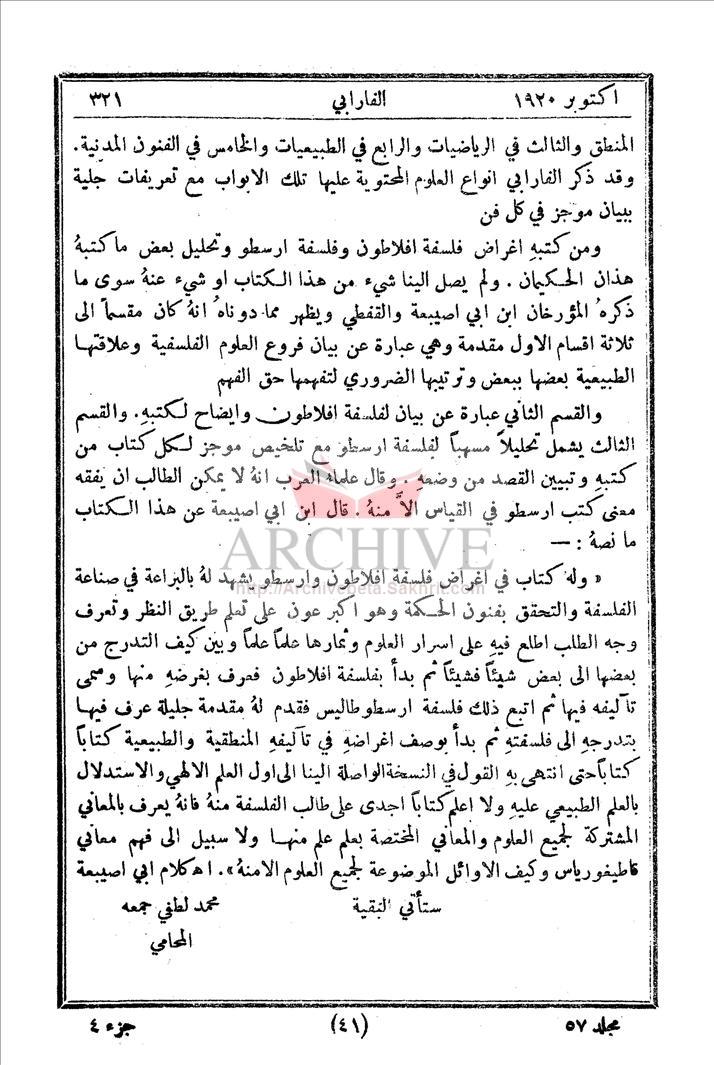 اكتوبر ١٩٢٠ الفارابي ٣٢١
المنطق والثالث في الرياضيات والرابع في الطبيعيات والخامس في الفنون المدنية .
وقد ذكر الفارابي انواع العلوم المحتوية عليها تلك الابواب مع تعريفات جلية
ببيان موجز في كل فن
ومن كتبهِ اغراض فلسفة افلاطون وفلسفة ارسطو وتحليل بعض ما كتبهُ
هذان الحكيمان . ولم يصل الينا شيء من هذا الكتاب او شيء عنهُ سوى ما
ذكرهُ المؤرخان ابن ابي اصيبعة والقفطي ويظهر مما دوناهُ انهُ كان مقسماً الى
ثلاثة اقسام الاول مقدمة وهي عبارة عن بيان فروع العلوم الفلسفية وعلاقتها
الطبيعية بعضها ببعض وترتيبها الضروري لتفهمها حق الفهم
والقسم الثاني عبارة عن بيان لفلسفة افلاطون وايضاح لكتبهِ . والقسم
الثالث يشمل تحليلاً مسهباً لفلسفة ارسطو مع تلخيص موجز لكل كتاب من
كتبهِ وتبيين القصد من وضعهِ . وقال علماء العرب انهُ لا يمكن الطالب ان يفقه
معنى كتب ارسطو في القياس الاَّ منهُ . قال ابن ابي اصيبعة عن هذا الكتاب
ما نصهُ : —
« وله كتاب في اغراض فلسفة افلاطون وارسطو يشهد لهُ بالبراعة في صناعة
الفلسفة والتحقق بفنون الحكمة وهو اكبر عون على تعلم طريق النظر وتعرف
وجه الطلب اطلع فيهِ على اسرار العلوم وثمارها علماً علماً وبين كيف التدرج من
بعضها الى بعض شيئاً فشيئاً ثم بدأ بفلسفة افلاطون فعرف بغرضهِ منها وسمى
تآليفه فيها ثم اتبع ذلك فلسفة ارسطوطاليس فقدم لهُ مقدمة جليلة عرف فيها
بتدرجهِ الى فلسفتهِ ثم بدأ بوصف اغراضهِ في تآليفهِ المنطقية والطبيعية كتاباً
كتاباً حتى انتهى بهِ القول في النسخة الواصلة الينا الى اول العلم الالهي والاستدلال
بالعلم الطبيعي عليهِ ولا اعلم كتاباً اجدى على طالب الفلسفة منهُ فانهُ يعرف بالمعاني
المشتركة لجميع العلوم والمعاني المختصة بعلم علم منها ولا سبيل الى فهم معاني
قاطيغورياس وكيف الاوائل الموضوعة لجميع العلوم الا منهُ » . اه كلام ابي اصيبعة
ستأتي البقية محمد لطفي جمعه
المحامي
مجلد ٥٧ (٤١) جزء ٤
ARCHIVE
http://Archivebeta.Sakhrit.com